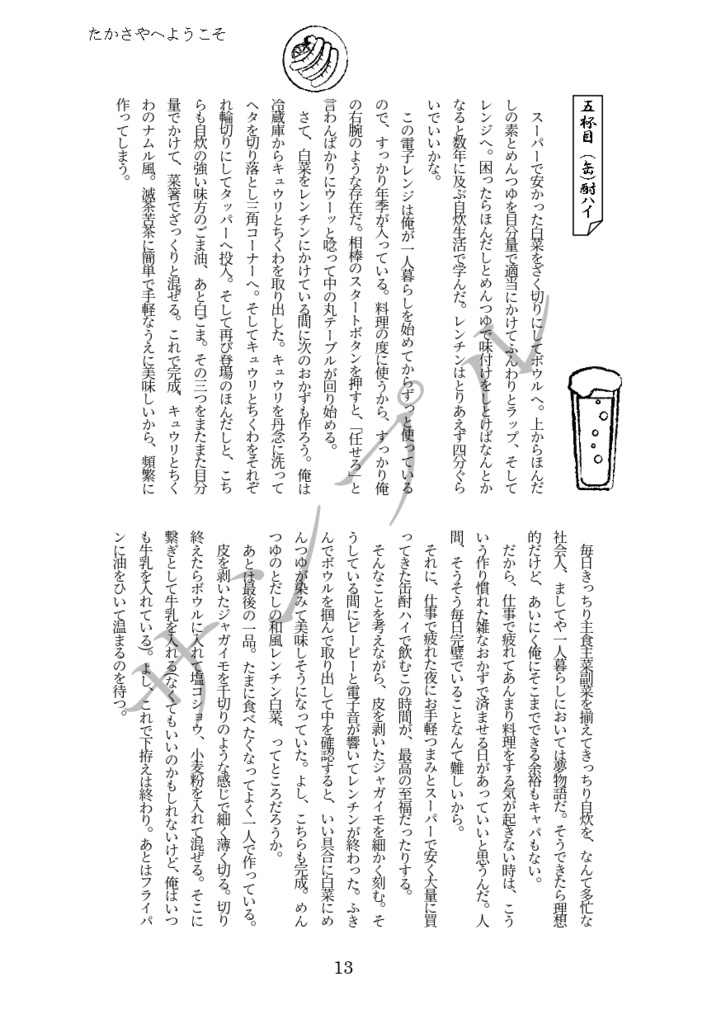 たかさやへようこそ
五杯目 (缶)酎ハイ
　スーパーで安かった白菜をざく切りにしてボウルへ。上からほんだ
しの素とめんつゆを目分量で適当にかけてふんわりとラップ、そして
レンジへ。困ったらほんだしとめんつゆで味付けをしとけばなんとか
なると数年に及ぶ自炊生活で学んだ。レンチンはとりあえず四分ぐら
いでいいかな。
　この電子レンジは俺が一人暮らしを始めてからずっと使っている
ので、すっかり年季が入っている。料理の度に使うから、すっかり俺
の右腕のような存在だ。相棒のスタートボタンを押すと、「任せろ」と
言わんばかりにウーッと唸って中の丸テーブルが回り始める。
　さて、白菜をレンチンにかけている間に次のおかずも作ろう。俺は
冷蔵庫からキュウリとちくわを取り出した。キュウリを丹念に洗って
ヘタを切り落とし三角コーナーへ。そしてキュウリとちくわをそれぞ
れ輪切りにしてタッパーへ投入。そして再び登場のほんだしと、こち
らも自炊の強い味方のごま油、あと白ごま。その三つをまたまた目分
量でかけて、菜箸でざっくりと混ぜる。これで完成、キュウリとちく
わのナムル風。滅茶苦茶に簡単で手軽なうえに美味しいから、頻繁に
作ってしまう。
　毎日きっちり主食主菜副菜を揃えてきっちり自炊を、なんて多忙な
社会人、ましてや一人暮らしにおいては夢物語だ。そうできたら理想
的だけど、あいにく俺にそこまでできる余裕もキャパもない。
　だから、仕事で疲れてあんまり料理をする気が起きない時は、こう
いう作り慣れた雑なおかずで済ませる日があっていいと思うんだ。人
間、そうそう毎日完璧でいることなんて難しいから。
　それに、仕事で疲れた夜にお手軽つまみとスーパーで安く大量に買
ってきた缶酎ハイで飲むこの時間が、最高の至福だったりする。
　そんなことを考えながら、皮を剥いたジャガイモを細かく刻む。そ
うしている間にピーピーと電子音が響いてレンチンが終わった。ふき
んでボウルを掴んで取り出して中を確認すると、いい具合に白菜にめ
んつゆが染みて美味しそうになっていた。よし、こちらも完成。めん
つゆのとだしの和風レンチン白菜、ってところだろうか。
　あとは最後の一品。たまに食べたくなってよく一人で作っている。
　皮を剥いたジャガイモを千切りのような感じで細く薄く切る。切り
終えたらボウルに入れて塩コショウ、小麦粉を入れて混ぜる。そこに
繋ぎとして牛乳を入れる(なくてもいいのかもしれないけど、俺はいつ
も牛乳を入れている)。よし、これで下拵えは終わり。あとはフライパ
ンに油をひいて温まるのを待つ。
サンプル
13